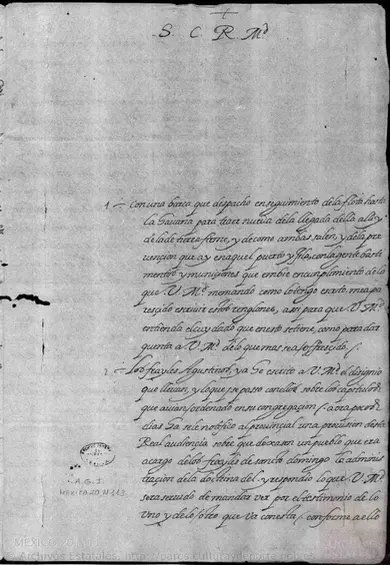 S. C. R. Md
1 — Con una barca que despacho en seguimiento de la flota hasta
la Havana para traer nueva de la llegada della alli y
de la de tierra firme, y de como ambas salen, y de la pre
vencion que ay en aquel puerto y Isla, con la gente basti
mentos y municiones que embie en cumplimiento de lo
que V. Md. me mando como lo tengo escrito, me a pa
rescido escrivir estos renglones, assi para que V. Md.
entienda el cuydado que en esto se tiene, como para dar
quenta a V. Md. de lo que mas se a offrescido /.
2 — Los frayles Agustinos, ya se escrito a V. Md. el designio
que llevan, y lo que se passo con ellos sobre los capitulos
que avian ordenado en su congregacion / avra pocos
dias se le notifico al provincial una provision desta
Real audiencia sobre que dexasen un pueblo que era
a cargo de los frayles de sancto domingo la adminis
tracion de la doctrina del, y respondio lo que V. Md.
sera servido de mandar ver por el testimonio de lo
uno y de lo otro que va con esta / conforme a ello
A. G. I.
MEXICO, 20, N.
Archivos Estatales, http://pares.culturaydeporte.gob.es